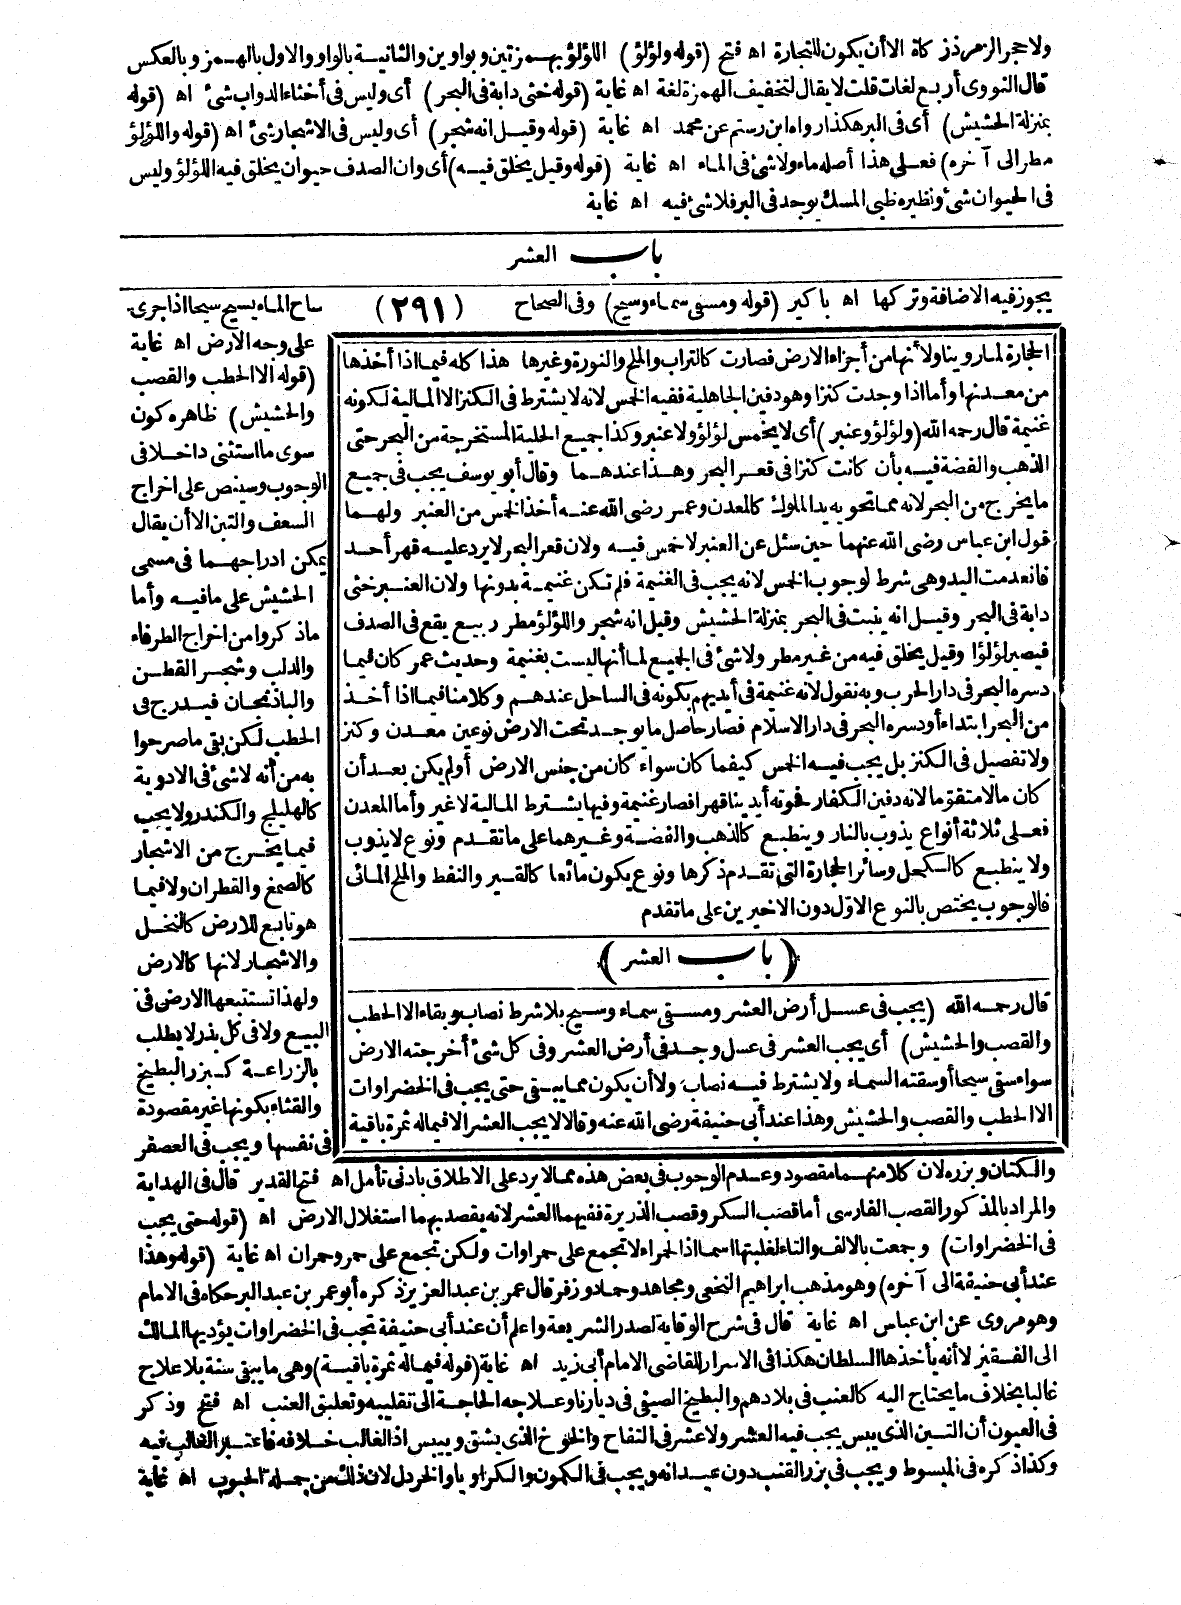 ولا حجر الزمرذ زكاة الا أن يكون للتجارة اه فتح (قوله ولؤلؤ) اللؤلؤ بهمزتين وبواوين والثانية بالواو والاول بالهمز وبالعكس
قال النووى أربع لغات قلت لا يقال لتخفيف الهمزة لغة اه غاية (قوله خثى دابة فى البحر) أى وليس فى أخثاء الدواب شئ اه (قوله
بمنزلة الحشيش) أى فى البر هكذا رواه ابن رستم عن محمد اه غاية (قوله وقيل انه شجر) أى وليس فى الاشجار شئ اه (قوله واللؤلؤ
مطر الى آخره) فعلى هذا أصله ماء ولا شئ فى الماء اه غاية (قوله وقيل يخلق فيه) أى وان الصدف حيوان يخلق فيه اللؤلؤ وليس
فى الحيوان شئ ونظيره ظبى المسك يوجد فى البر فلا شئ فيه اه غاية
باب العشر
يجوز فيه الاضافة وتركها اه باكير (قوله ومسقى سماء وسيح) وفى الصحاح (٢٩١) ساح الماء يسيح سيحا اذا جرى
على وجه الارض اه غاية
(قوله الا الحطب والقصب
والحشيش) ظاهره كون
سوى ما استثنى داخلا فى
الوجوب وسينص على اخراج
السعف والتبن الا أن يقال
يمكن ادراجهما فى مسمى
الحشيش على ما فيه وأما
ما ذكروا من اخراج الطرفاء
والدلب وشجر القطن
والباذنجان فيدرج فى
الحطب لكن بقى ما صرحوا
به من أنه لا شئ فى الادوية
كالهليلج والكندر ولا يجب
فيما يخرج من الاشجار
كالصمغ والقطران ولا فيما
هو تابع للارض كالنخل
والاشجار لانها كالارض
ولهذا تستتبعها الارض فى
البيع ولا فى كل بذر لا يطلب
بالزراعة كبزر البطيخ
والقثاء بكونها غير مقصودة
فى نفسها ويجب فى العصفر
الحجارة لما روينا ولأنها من أجزاء الارض فصارت كالتراب والملح والنورة وغيرها هذا كله فيما اذا أخذها
من معدنها وأما اذا وجدت كنزا وهو دفين الجاهلية ففيه الخمس لانه لا يشترط فى الكنز الا المالية لكونه
غنيمة قال رحمه الله (ولؤلؤ وعنبر) أى لا يخمس لؤلؤ ولا عنبر وكذا جميع الحلية المستخرجة من البحر حتى
الذهب والفضة فيه بأن كانت كنزا فى قعر البحر وهذا عندهما وقال أبو يوسف يجب فى جميع
ما يخرج من البحر لانه مما تحويه يد الملوك كالمعدن وعمر رضى الله عنه أخذ الخمس من العنبر ولهما
قول ابن عباس رضى الله عنهما حين سئل عن العنبر لا خمس فيه ولان قعر البحر لا يرد عليه قهر أحد
فانعدمت اليد وهى شرط لوجوب الخمس لانه يجب فى الغنيمة فلم تكن غنيمة بدونها ولان العنبر خثى
دابة فى البحر وقيل انه ينبت فى البحر بمنزلة الحشيش وقيل انه شجر واللؤلؤ مطر ربيع يقع فى الصدف
فيصير لؤلؤا وقيل يخلق فيه من غير مطر ولا شئ فى الجميع لما أنها ليست بغنيمة وحديث عمر كان فيما
دسره البحر فى دار الحرب وبه نقول لانه غنيمة فى أيديهم بكونه فى الساحل عندهم وكلامنا فيما اذا أخذ
من البحر ابتداء أو دسره البحر فى دار الاسلام فصار حاصل ما يوجد تحت الارض نوعين معدن وكنز
ولا تفصيل فى الكنز بل يجب فيه الخمس كيفما كان سواء كان من جنس الارض أو لم يكن بعد أن
كان مالا متقوما لانه دفين الكفار فحوته أيدينا قهرا فصار غنيمة وفيها يشترط المالية لا غير وأما المعدن
فعلى ثلاثة أنواع يذوب بالنار وينطبع كالذهب والفضة وغيرهما على ما تقدم ونوع لا يذوب
ولا ينطبع كالكحل وسائر الحجارة التى تقدم ذكرها ونوع يكون مائعا كالقير والنفط والملح المائى
فالوجوب يختص بالنوع الاول دون الاخيرين على ما تقدم
(باب العشر)
قال رحمه الله (يجب فى عسل أرض العشر ومسقى سماء وسيح بلا شرط نصاب وبقاء الا الحطب
والقصب والحشيش) أى يجب العشر فى عسل وجد فى أرض العشر وفى كل شئ أخرجته الارض
سواء سقى سيحا أو سقته السماء ولا يشترط فيه نصاب ولا أن يكون مما يبقى حتى يجب فى الخضراوات
الا الحطب والقصب والحشيش وهذا عند أبى حنيفة رضى الله عنه وقالا لا يجب العشر الا فيما له ثمرة باقية
والكتان وبزره لان كلا منهما مقصود وعدم الوجوب فى بعض هذه مما لا يرد على الاطلاق بادنى تأمل اه فتح القدير قال فى الهداية
والمراد بالمذكور القصب الفارسى أما قصب السكر وقصب الذريرة ففيهما العشر لانه يقصد بهما استغلال الارض اه (قوله حتى يجب
فى الخضراوات) وجمعت بالالف والتاء لغلبتها اسما اذ الحمراء لا تجمع على حمراوات ولكن تجمع على حمر وحمران اه غاية (قوله وهذا
عند أبى حنيفة الى آخره) وهو مذهب ابراهيم النخعى ومجاهد وحماد وزفر قال عمر بن عبد العزيز ذكره أبو عمر بن عبد البر حكاه فى الامام
وهو مروى عن ابن عباس اه غاية قال فى شرح الوقاية لصدر الشريعة واعلم أن عند أبى حنيفة تجب فى الخضراوات يؤديها المالك
الى الفقير لا أنه يأخذها السلطان هكذا فى الاسرار للقاضى الامام أبى زيد اه غاية (قوله فيما له ثمرة باقية) وهى ما يبقى سنة بلا علاج
غالبا بخلاف ما يحتاج اليه كالعنب فى بلادهم والبطيخ الصيفى فى ديارنا وعلاجه الحاجة الى تقليبه وتعليق العنب اه فتح وذكر
فى العيون أن التين الذى ييبس يجب فيه العشر ولا عشر فى التفاح والخوخ الذى يشق وييبس اذ الغالب خلافه فاعتبر الغالب فيه
وكذا ذكره فى المبسوط ويجب فى بزر القنب دون عيدانه ويجب فى الكمون والكراويا والخردل لان ذلك من جملة الحبوب اه غاية